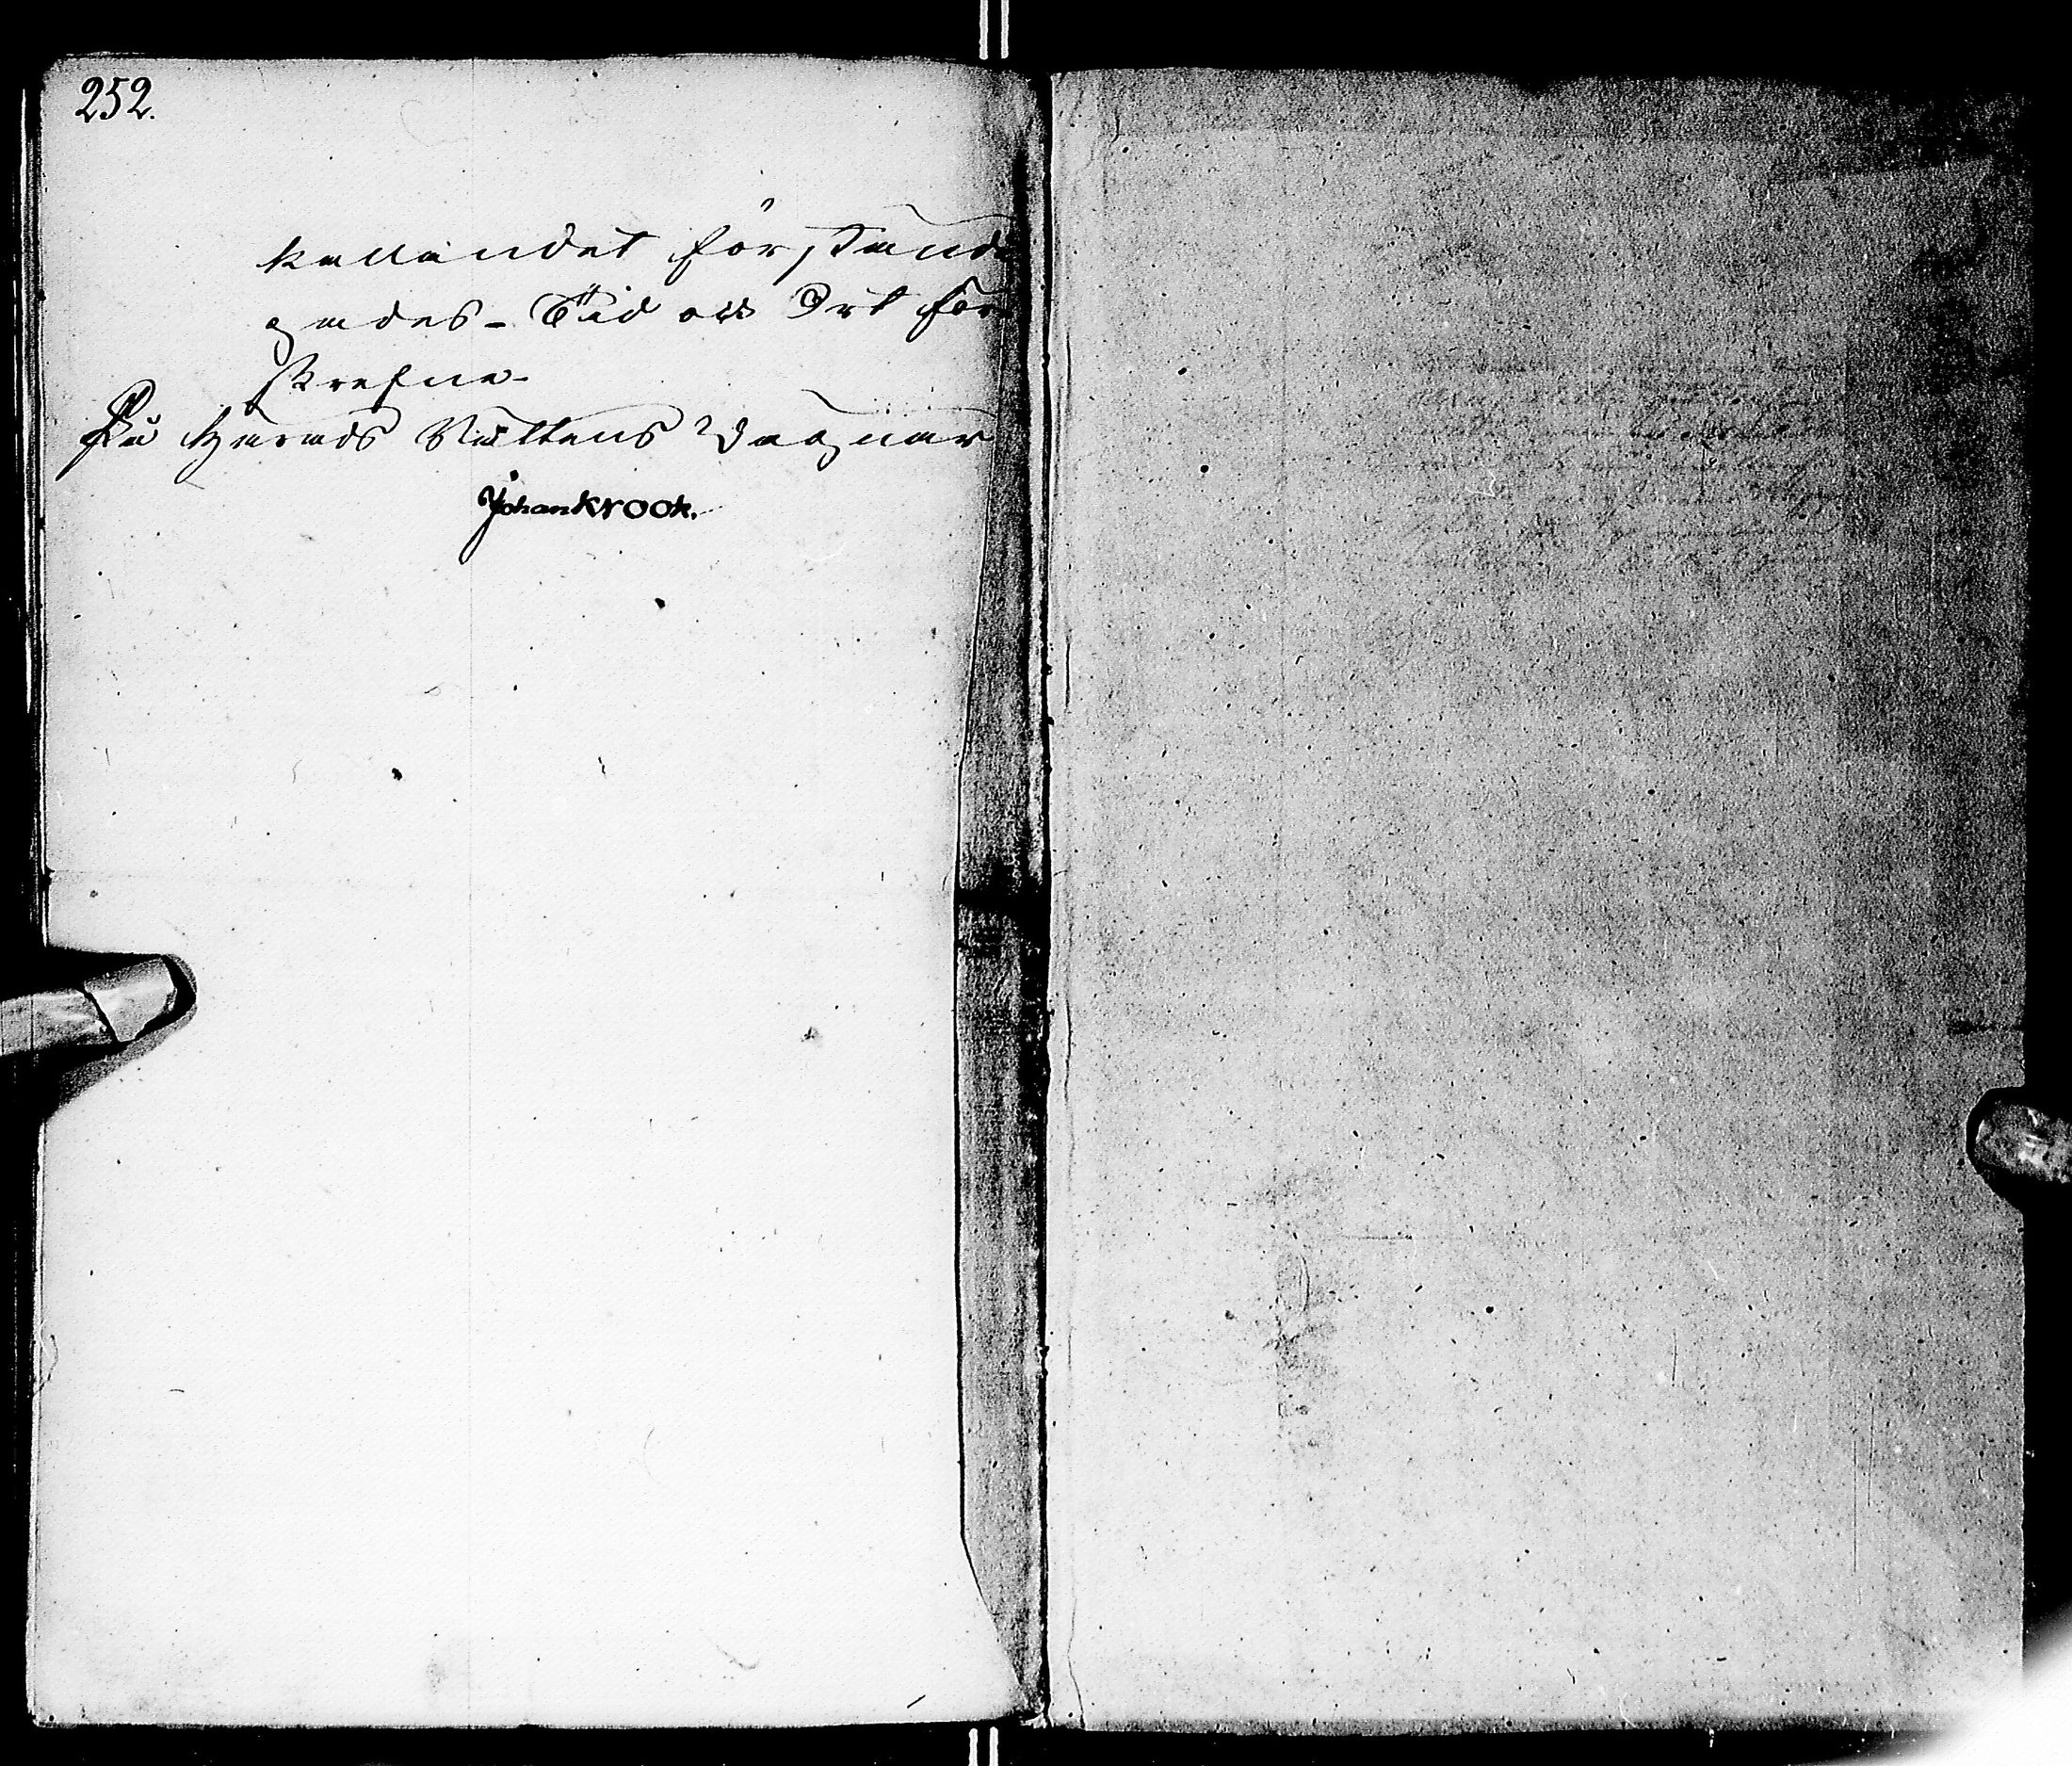 252.
kallandet förständi
gades - Tid och Ort för
skrefne -
På Härads Rättens Wägnar
Johan Krook.